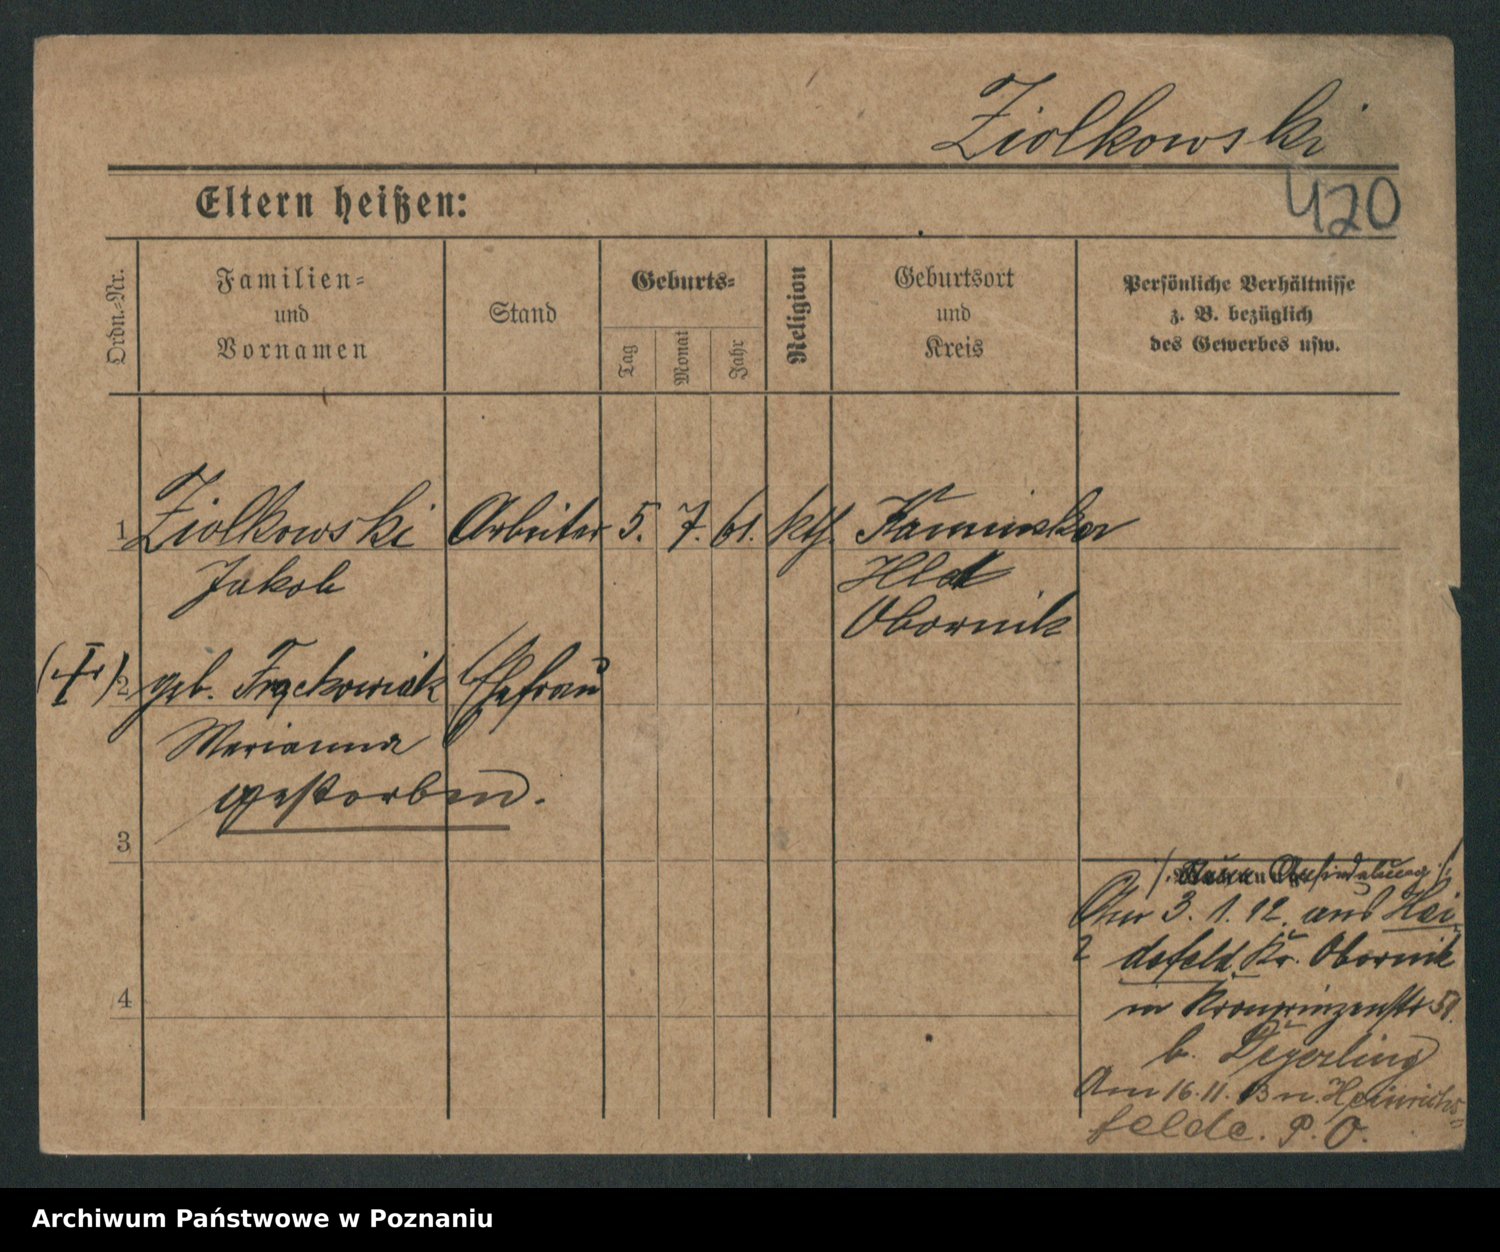 Ziolkowski
420
Eltern heißen:
Ordn.-Nr.
Familien-
und
Vornamen
Stand
Geburts-
Tag
Monat
Jahr
Religion
Geburtsort
und
Kreis
Persönliche Verhältnisse
z. B. bezüglich
des Gewerbes usw.
1 Ziolkowski Arbeiter 5. 7. 61. kth. Kaminsker
Jakob Hld
Obornik
2 geb. Frąckowiak Ehefrau
Marianna
gestorben.
3
4
3. 1. 12. aus Hei-
defeld Kr. Obornik
in Kronprinzenstr 51.
b. Degerling
Am 16. 11. 13 n. Heinrichs-
felde. P. O.
Archiwum Państwowe w Poznaniu